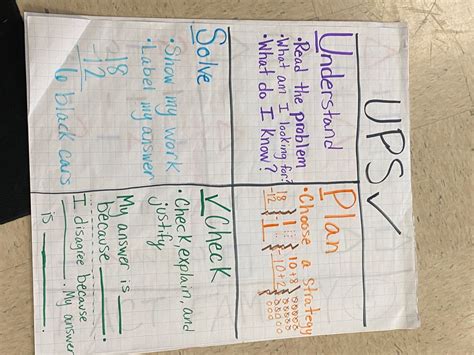 UPS✓
Understand
• Read the problem
• What am I looking for?
• What do I know?
Plan
• Choose a strategy
18
-12
10+8
-10+2
Solve
• Show my work
• Label my answer
18
-12
6 black cars
✓Check
• Check, explain, and
justify
My answer is ____
because ____.
I disagree because
____. My answer
is ____.